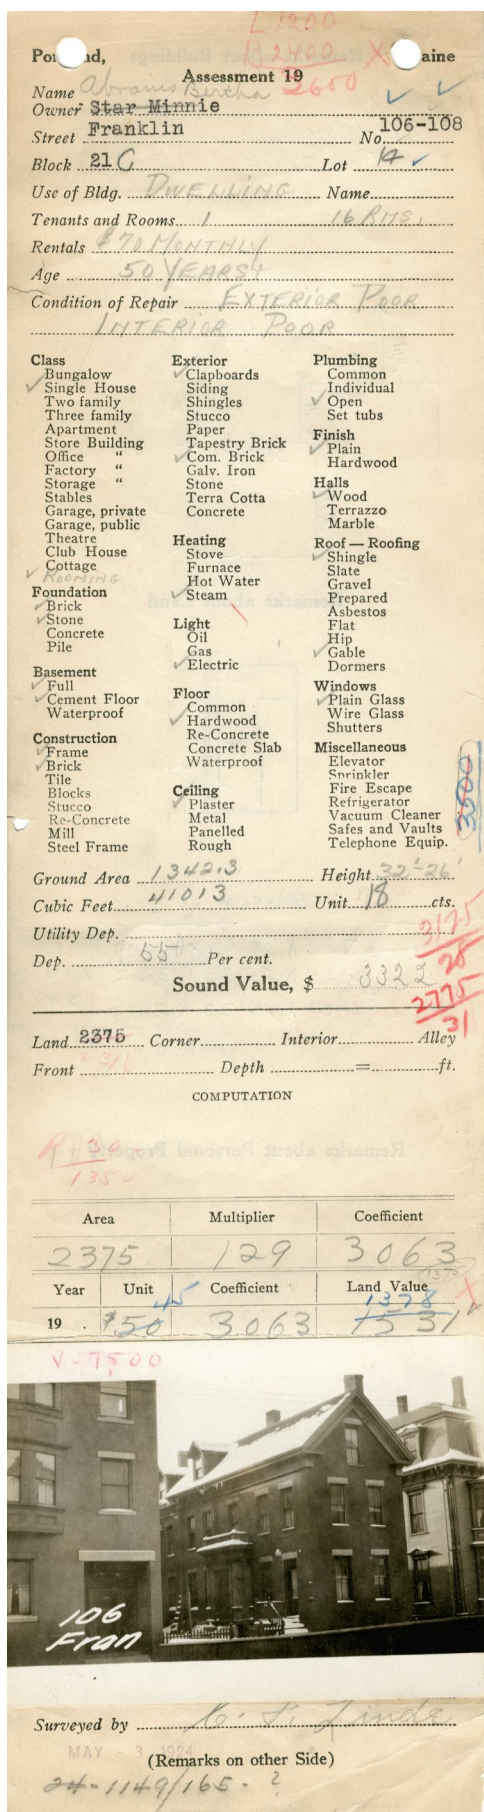 L 1200
B 2400 X
3600
Portland, Maine
Assessment 19
Name Abrams Bertha
Owner Star Minnie
Street Franklin No. 106-108
Block 21 C Lot 14
Use of Bldg. DWELLING Name
Tenants and Rooms 1 16 RMS.
Rentals $70 MONTHLY
Age 50 YEARS+
Condition of Repair EXTERIOR POOR
INTERIOR POOR
Class
Bungalow
Single House
Two family
Three family
Apartment
Store Building
Office "
Factory "
Storage "
Stables
Garage, private
Garage, public
Theatre
Club House
Cottage
ROOMING
Foundation
Brick
Stone
Concrete
Pile
Basement
Full
Cement Floor
Waterproof
Construction
Frame
Brick
Tile
Blocks
Stucco
Re-Concrete
Mill
Steel Frame
Exterior
Clapboards
Siding
Shingles
Stucco
Paper
Tapestry Brick
Com. Brick
Galv. Iron
Stone
Terra Cotta
Concrete
Heating
Stove
Furnace
Hot Water
Steam
Light
Oil
Gas
Electric
Floor
Common
Hardwood
Re-Concrete
Concrete Slab
Waterproof
Ceiling
Plaster
Metal
Panelled
Rough
Plumbing
Common
Individual
Open
Set tubs
Finish
Plain
Hardwood
Halls
Wood
Terrazzo
Marble
Roof — Roofing
Shingle
Slate
Gravel
Prepared
Asbestos
Flat
Hip
Gable
Dormers
Windows
Plain Glass
Wire Glass
Shutters
Miscellaneous
Elevator
Sprinkler
Fire Escape
Refrigerator
Vacuum Cleaner
Safes and Vaults
Telephone Equip.
3500
Ground Area 1342.3 Height 32'-26'
Cubic Feet 41013 Unit 18 cts.
Utility Dep.
3175
Dep. 55 Per cent.
Sound Value, $ 3322
2775
31
Land 2375 Corner Interior Alley
316
Front Depth = ft.
COMPUTATION
30
1350
Area Multiplier Coefficient
2375 129 3063
Year Unit Coefficient Land Value
45 1378
19 . $50 3063 1531
V-7500
106
Fran
Surveyed by
MAY - 3 1924
(Remarks on other Side)
24-1149/165- ?